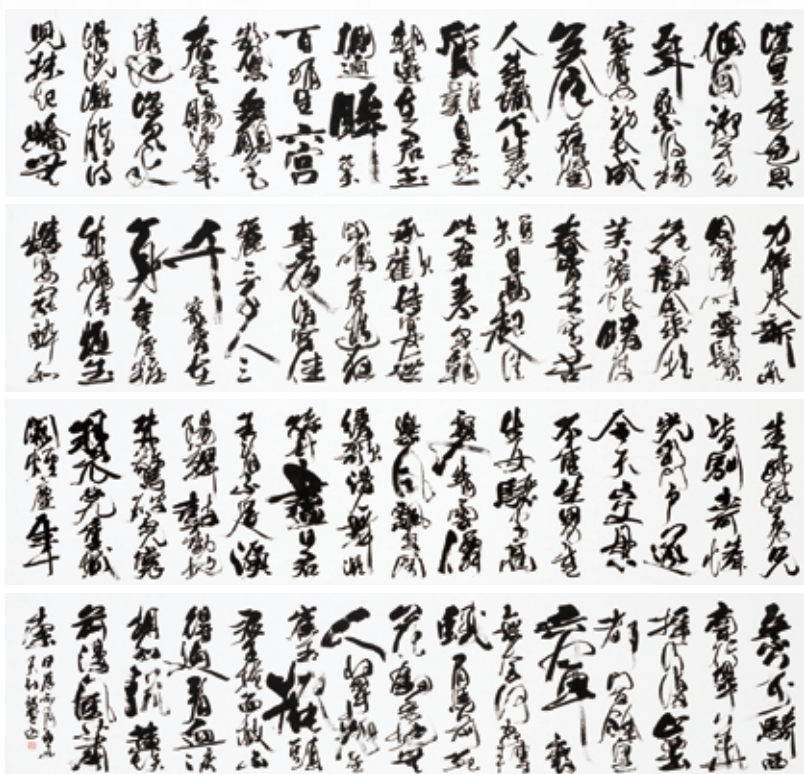 漢皇重色思
傾國御宇多
年求不得楊
家有女初長成
養在深閨
人未識天生麗
質難自棄一
朝選在君王
側回眸一笑
百媚生六宮
粉黛無顏色
春寒賜浴華
清池溫泉水
滑洗凝脂侍
兒扶起嬌無
力始是新承
恩澤時雲鬢
花顏金步搖
芙蓉帳暖度
春宵春宵苦
短日高起從
此君王不早朝
承歡侍宴無
閑暇春從春遊夜
專夜後宮佳
麗三千人三
千寵愛在一
身金屋妝
成嬌侍夜玉
樓宴罷醉和
春姊妹弟兄
皆列土可憐
光彩生門戶遂
令天下父母心
不重生男重
生女驪宮高處
入青雲仙
樂風飄處處聞
緩歌慢舞凝
絲竹盡日君
王看不足漁
陽鼙鼓動地
來驚破霓裳
羽衣曲九重城
闕煙塵生千
乘萬騎西
南行翠華搖
搖行復止西出
都門百餘里
六軍不發
無奈何宛轉
蛾眉馬前死
花鈿委地無
人收翠翹金
雀玉搔頭
君王掩面救不
得回看血淚
相和流黃埃
散漫風蕭
索